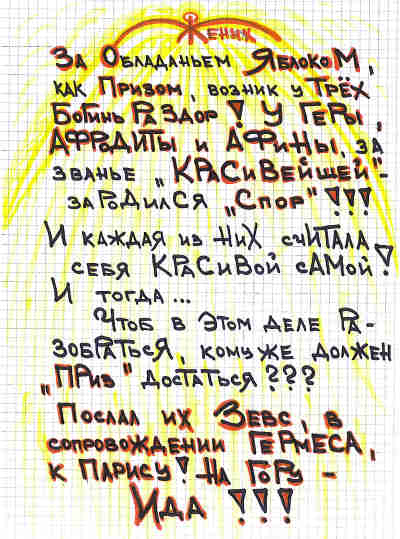 Жених
За Обладаньем ЯблокоМ,
как Призом, возник у Трёх
Богинь Раздор! У Геры,
АФРОДИТЫ и АФиНЫ, за
званье „КРАСиВЕйшей"-
зародился „Спор"!!!
И каждая из НиХ счИТАЛА
себя КРАСиВой сАМой!
И тогда...
Чтоб в этом деле РА-
зобРАТЬсЯ, кому же должен
„ПРиз" достаться???
Послал их Зевс, в
сопровождении ГЕРМЕСА,
к Парису! На Гору -
Ида!!!